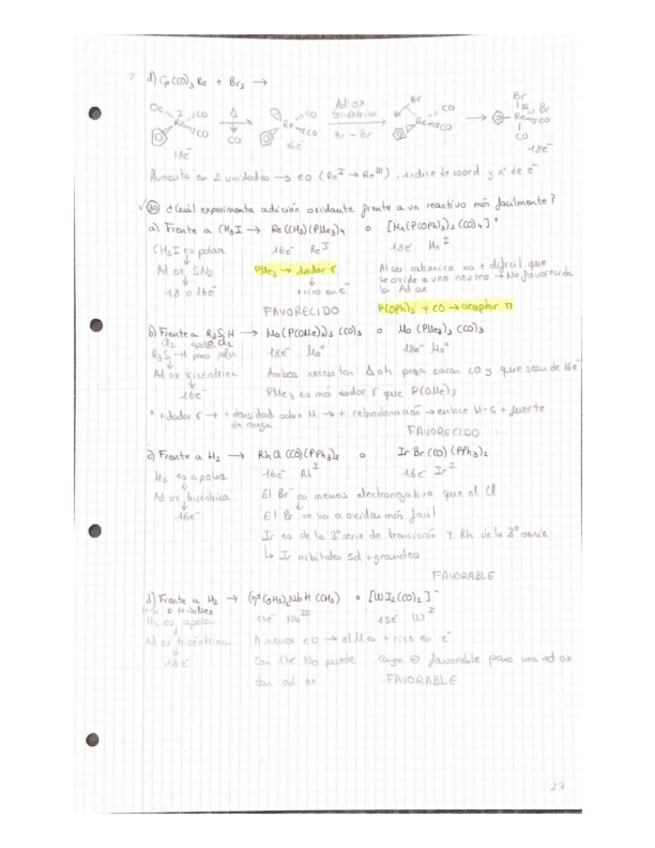 d) Cp(CO)₃Re + Br₂ →
OC I CO
Re CO
18e⁻
Δ
CO
CO
Re CO
16e⁻
Ad ox
tricéntrica
Br - Br
Br
Br
Re CO
CO
Br
Re Br
CO
CO
18e⁻
Aumenta en 2 unidades → EO (Re^I → Re^III), índice de coord y nº de e⁻
30 ¿Cuál experimenta adición oxidante frente a un reactivo más facilmente?
a) Frente a CH₃I → Re(CH₃)(PMe₃)₄ o [Mn(P(OPh)₃)₂(CO)₄]⁺
CH₃I es polar 16e⁻ Re^I 18e⁻ Mn^I
Ad ox SN₂
18 o 16e⁻
PMe₃ → dador σ
+ rico en e⁻
FAVORECIDO
Al ser cationico es + dificil que
se oxide a uno neutro → No favorecida
la Ad ox
P(OPh)₃ y CO → aceptor π
b) Frente a R₃SiH → Mo(P(OMe)₃)₃(CO)₃ o Mo(PMe₃)₃(CO)₃
R₃Si-H poco polar 18e⁻ Mo⁰ 18e⁻ Mo⁰
Ad ox tricéntrica Ambos necesitan Δ o hν para sacar CO y que sean de 16e⁻
16e⁻ PMe₃ es más dador σ que P(OMe)₃
* + dador σ → + densidad sobre M → + retrodonación → enlace M-C + fuerte
de carga
FAVORECIDO
c) Frente a H₂ → RhCl(CO)(PPh₃)₂ o IrBr(CO)(PPh₃)₂
H₂ es apolar 16e⁻ Rh^I 16e⁻ Ir^I
Ad ox tricéntrica El Br⁻ es menos electronegativo que el Cl
16e⁻ El Br se va a oxidar más facil
Ir es de la 3ª serie de transición y Rh de la 2ª serie
↳ Ir orbitales 5d + grandes
FAVORABLE
d) Frente a H₂ → (η⁵C₅H₅)₂NbH(CH₃) o [WI₂(CO)₂]⁻
H₂ es apolar
Ad ox tricéntrica A menos EO → el M es + rico en e⁻
16e⁻ Con 17e⁻ No puede carga ⊖ favorable para una ad ox
dar ad ox FAVORABLE
27